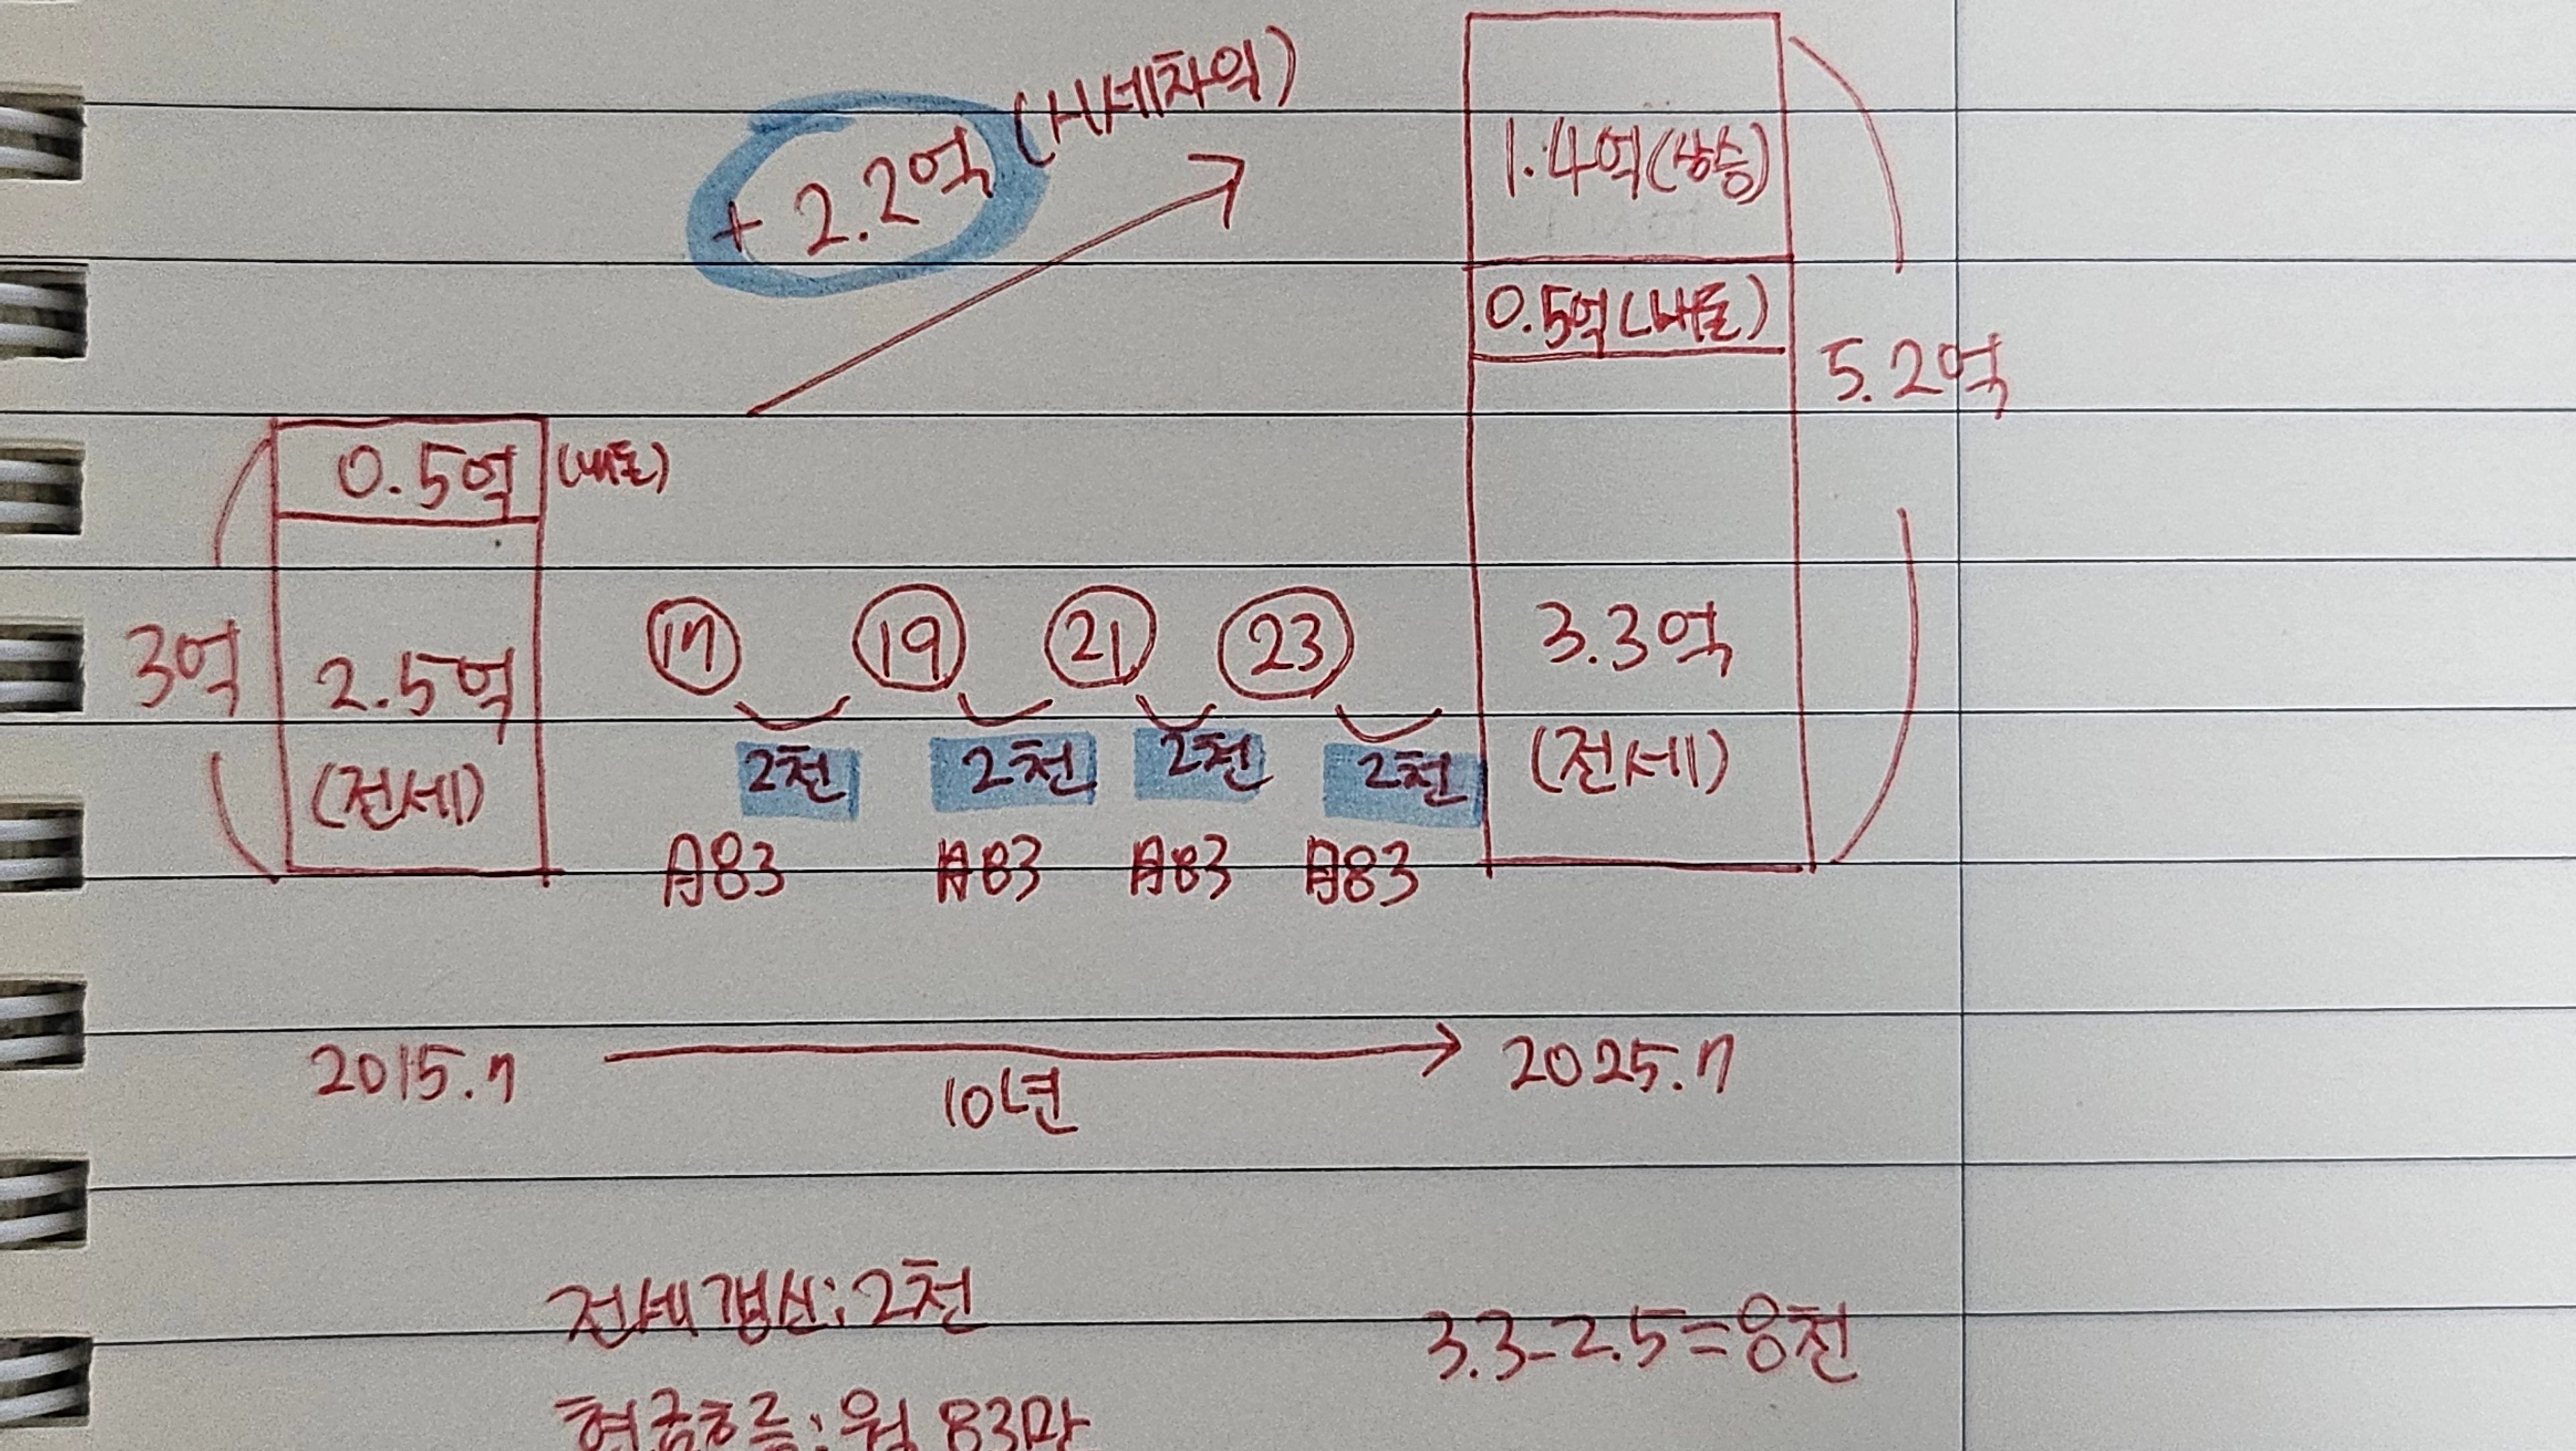 + 2.2억 (시세차익)
1.4억(상승)
0.5억(내돈)
5.2억
0.5억 (내돈)
3억
2.5억
(전세)
17 19 21 23
3.3억
(전세)
2천 2천 2천 2천
月83 月83 月83 月83
2015.7
10년
2025.7
전세갱신: 2천
3.3-2.5=8천
현금흐름: 월 83만